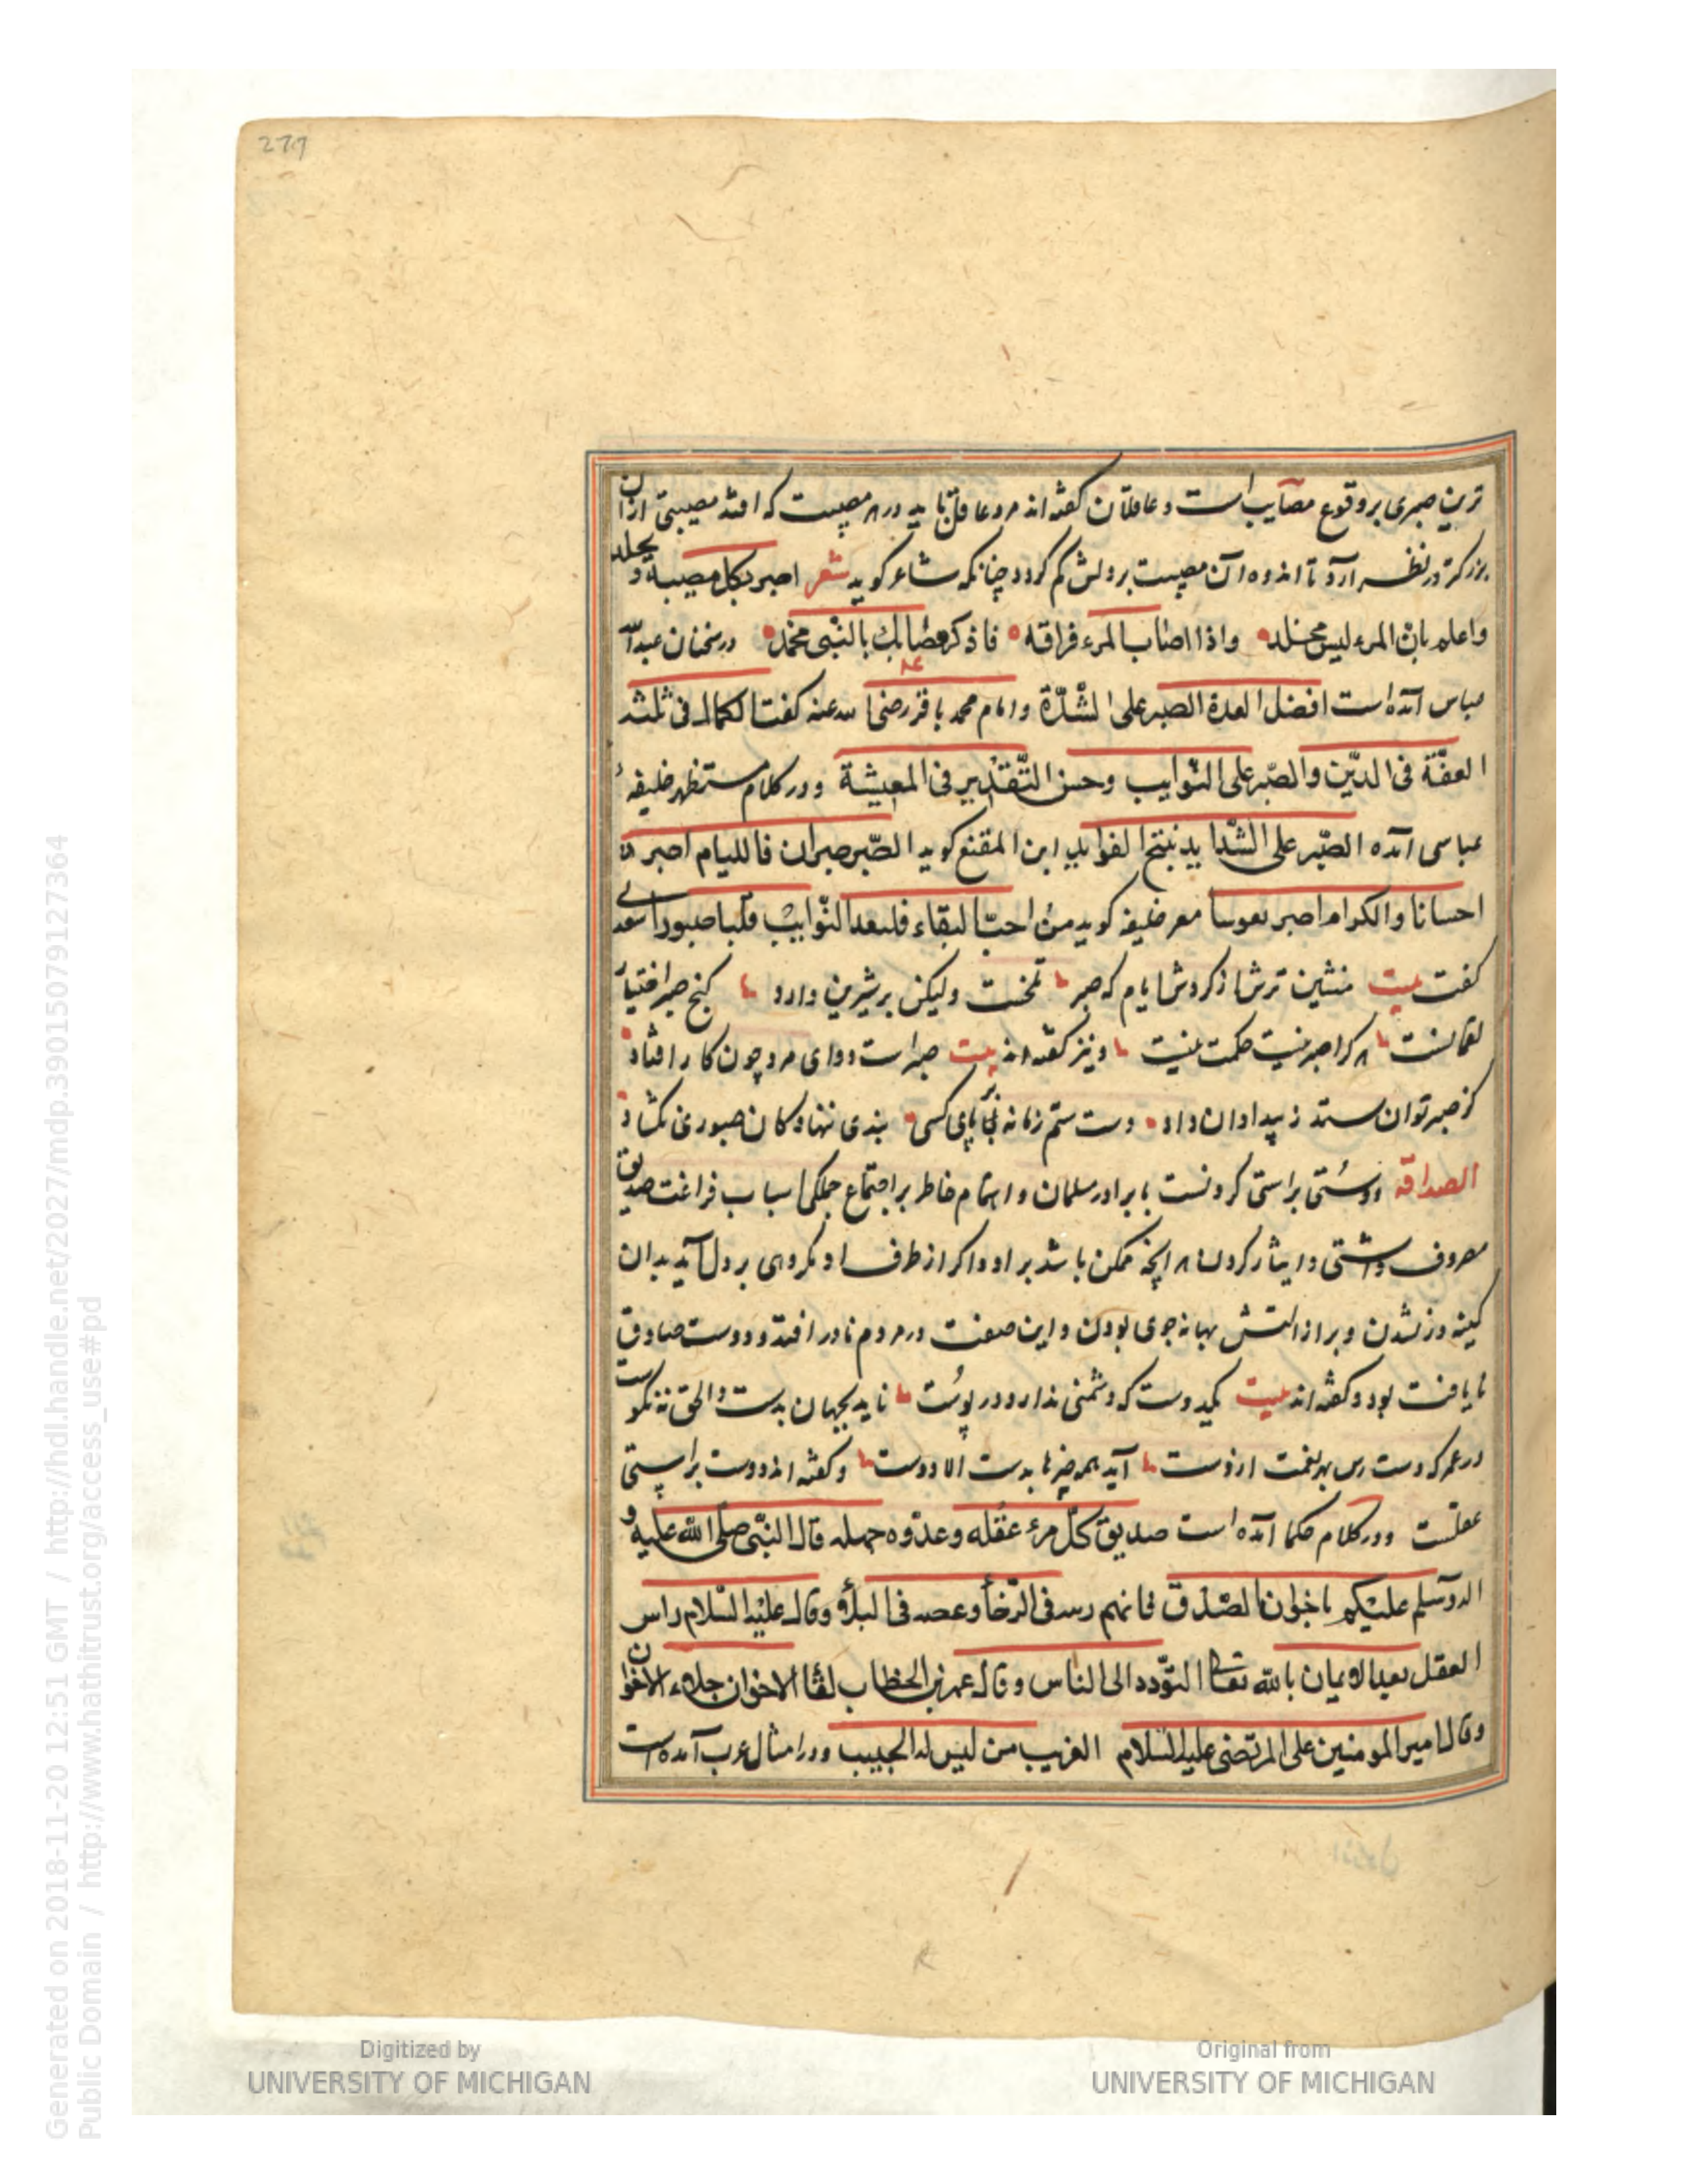 277
ترین صبری بر وقوع مصایب است و عاقلان کفته اند مرد عاقل باید در هر مصیبت که افتد مصیبتی ازان
بزرکتر در نظر آرد تا اندوه آن مصیبت بر دلش کم کردد چنانکه شاعر کوید شعر اصبر بکل مصیبة و تجلد
واعلم بان المرء لیس مخلد واذا اصاب المرء فراقه فاذکر مصابک بالنبی محمد در سخنان عبدالله
عباس آمده است افضل العدة الصبر علی الشدّة و امام محمد باقر رضی الله عنه کفت الکمال فی ثلث
العفّة فی الدّین والصّبر علی النوایب وحسن التّقدیر فی المعیشة و در کلام مستظهر خلیفهٔ
عباسی آمده الصّبر علی الشداید ینتج الفواید ابن المقنع کوید الصّبر صبران فاللیام اصبر
احسانا والکرام اصبر نفوسا معر خلیفه کوید من احبّ البقاء فلیعد النّوایب قلبا صبورا سعدی
کفت بیت منشین ترش از کردش ایام که صبر تلخست ولیکن بر شیرین دارد کنج صبر اختیار
لقمانست هر کرا صبر نیست حکمت نیست و نیز کفته اند بیت صبر است دوای مرد چون کار افتاد
کز صبر توان ستد ز بیدادان داد دست ستم زمانه بر پای کسی بندی ننهاد کان صبوری نکشاد
الصداقه دوستی براستی کردنست با برادر مسلمان و اهتمام خاطر بر اجتماع جملکی اسباب فراغت صدیق
مصروف داشتن و ایثار کردن هر آنچه ممکن باشد بر او و اکر از طرف او مکروهی بر دل آید بدان
کینه ور نشدن و بر ازالتش بهانه جوی بودن و این صفت در مردم نادر افتد و دوست صادق
نایافت بود و کفته اند بیت یکدوست که دشمنی ندارد در پوست ناید بجهان بدست و الحق نه نکوست
در عمر که دست رس بهر نعمت ازوست آید همه چیزها بدست الا دوست و کفته اند دوست براستی
عقلست و در کلام حکما آمده است صدیق کلّ مرء عقله وعدّوه جهله قال النبّی صلی الله علیه و
اله وسلم علیکم باخوان الصّدق فانهم زینة فی الرّخا وعصمة فی البلاء وقال علیه السّلام راس
العقل بعد الایمان بالله تعالی التّودد الی الناس وقال عمر بن الخطاب لقا الاخوان جلاء الاخوان
وقال امیر المومنین علی المرتضی علیه السّلام الغریب من لیس له الحبیب و در امثال عرب آمده است
Digitized by
UNIVERSITY OF MICHIGAN
Original from
UNIVERSITY OF MICHIGAN
Generated on 2018-11-20 12:51 GMT / http://hdl.handle.net/2027/mdp.39015079127364
Public Domain / http://www.hathitrust.org/access_use#pd